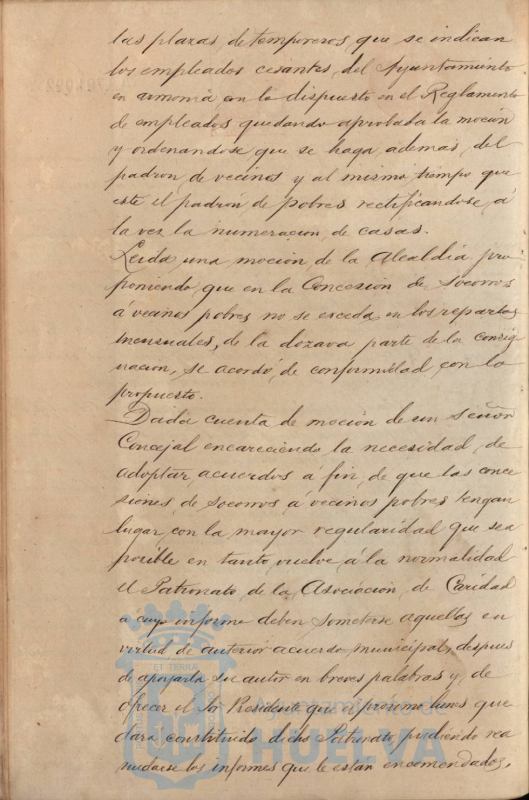 las plazas, de temporeros, que se indican
los empleados cesantes, del Ayuntamiento
en armonia con lo dispuesto en el Reglamento
de empleados quedando aprobaba la moción
y ordenandose que se haga, ademas, del
padron, de vecinos y al mismo tiempo que
este el padrón de pobres rectificandose á
la vez la numeracion de casas.
Leida, una moción de la Alcaldia pro
poniendo, que en la Concesión de Socorros
á vecinos pobres no se exceda en los repartos
mensuales, de la dozava parte de la consig
nacion, se acordó, de conformidad con lo
propuesto.
Dada cuenta de moción de un Señor
Concejal encareciendo la necesidad, de
adoptar, acuerdos á fin, de que las conce
siones, de socorros a vecinos pobres tengan
lugar, con la mayor regularidad que sea
posible en tanto, vuelve, á la normalidad
el Patronato, de la Asociación, de Caridad
a cuyo informe deben someterse aquellas en
virtud de anterior acuerdo municipal, despues
de apoyarla su autor en breves palabras y, de
ofrecer el Sor Presidente que el proximo lunes que
dara constituido dicho Patronato pudiendo rea
nudarse los informes que le estan encomendados,
ET TERRA
Ayuntamiento de
HUELVA